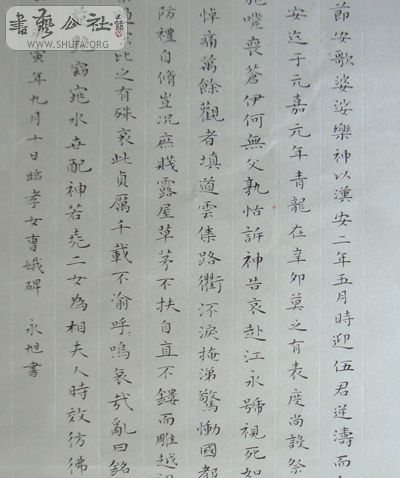 節安歌婆娑樂神以漢安二年五月時迎伍君逆濤而
安迄于元嘉元年青龍在辛卯莫之有表度尚設祭
嗟喪蒼伊何無父孰怙訴神告哀赴江永號視死如
悼痛萬餘觀者填道雲集路衢泣淚掩涕驚慟國都
防禮自脩豈況庶賤露屋草茅不扶自直不鏤而雕越
比之有殊哀此貞厲千載不渝呼嗚哀哉亂曰銘
窈窕永世配神若堯二女為相夫人時效彷彿
寅年九月十日臨孝女曹娥碑 永旭書
書藝公社
WWW.SHUFA.ORG